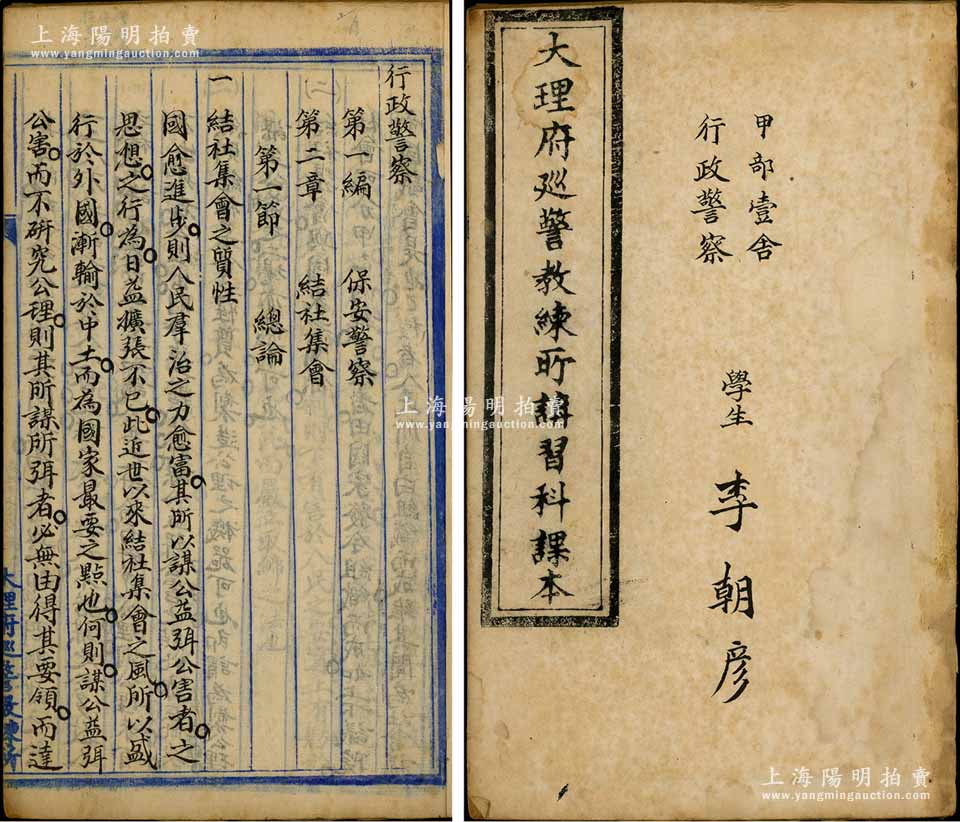 行政警察
第一編　保安警察
第二章　結社集會
第一節　總論
一　結社集會之質性
國愈進步則人民羣治之力愈富其所以謀公益弭公害者之
思想之行為日益擴張不已此近世以來結社集會之風所以盛
行於外國漸輸於中土而為國家最要之點也何則謀公益弭
公害而不研究公理則其所謀所弭者必無由得其要領而達
大理府巡警教練所
甲部壹舍
行政警察
學生　李朝彥
大理府巡警教練所講習科課本
上海陽明拍賣
www.yangmingauction.com
上海陽明拍賣
www.yangmingauction.com
上海陽明拍賣
www.yangmingauction.com